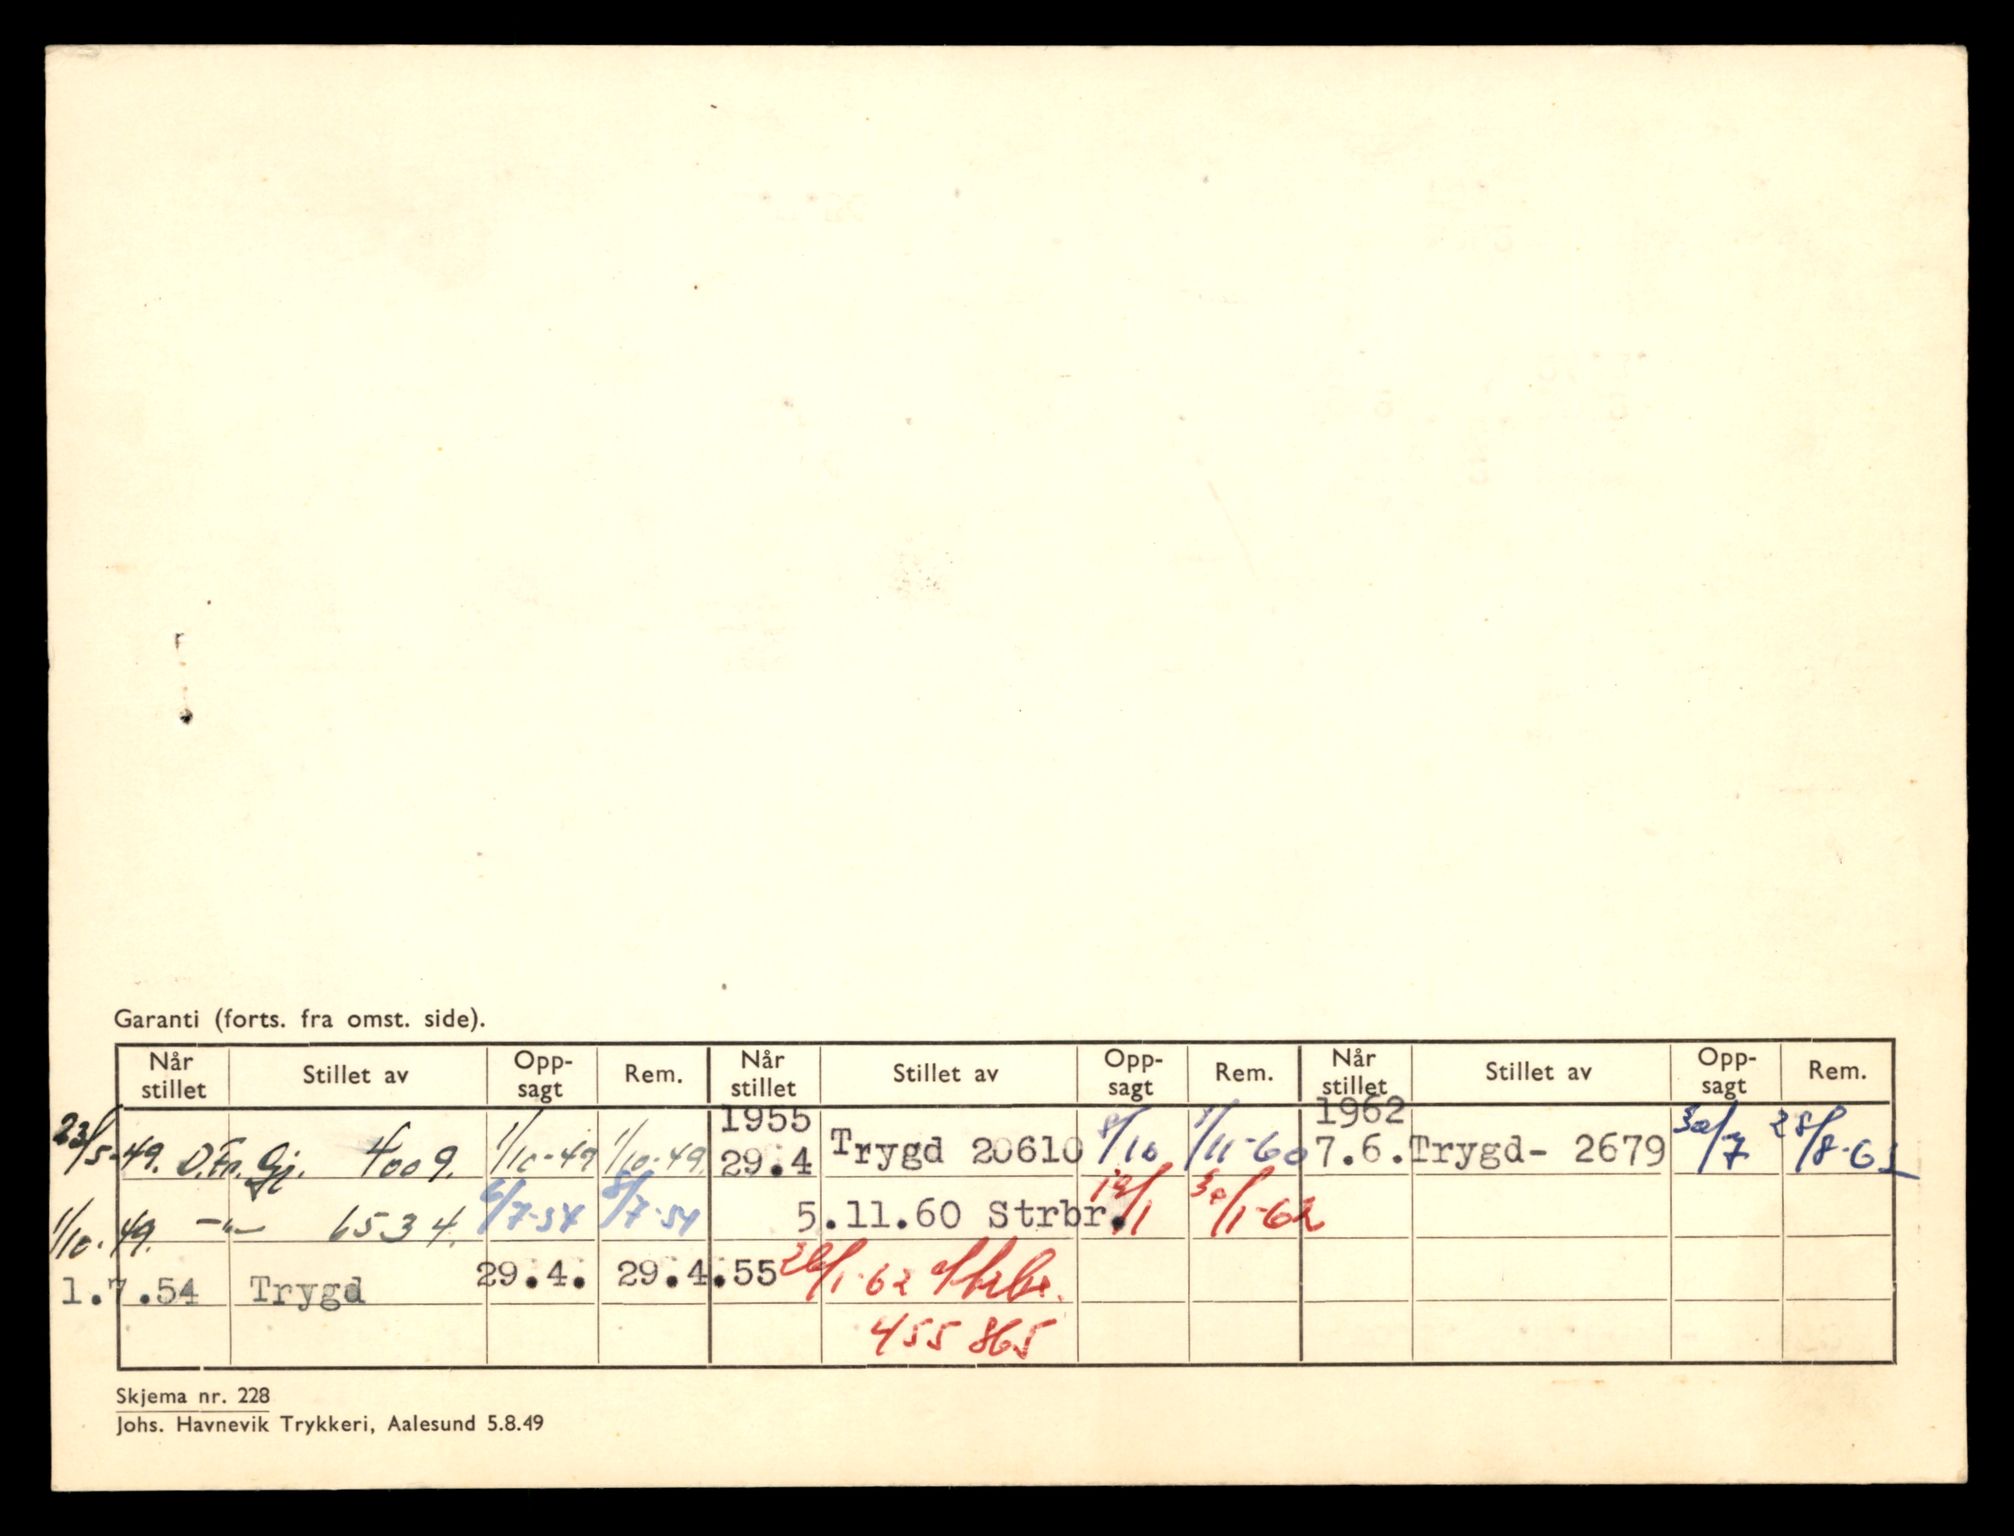 Garanti (forts. fra omst. side).
Når stillet Stillet av Opp-sagt Rem. Når stillet Stillet av Opp-sagt Rem. Når stillet Stillet av Opp-sagt Rem.
23/5-49. D.Fn. Gj. 4009. 1/10-49 1/10-49. 1955 29.4 Trygd 20610 /10 1/11-60 1962 7.6. Trygd- 2679 30/7 28/8-6
1/10.49. -"- 6534. 6/7-54 8/7-54 5.11.60 Strbr. 19/1 30/1-62
1.7.54 Trygd 29.4. 29.4.55 26/1-62
455 865
Skjema nr. 228
Johs. Havnevik Trykkeri, Aalesund 5.8.49